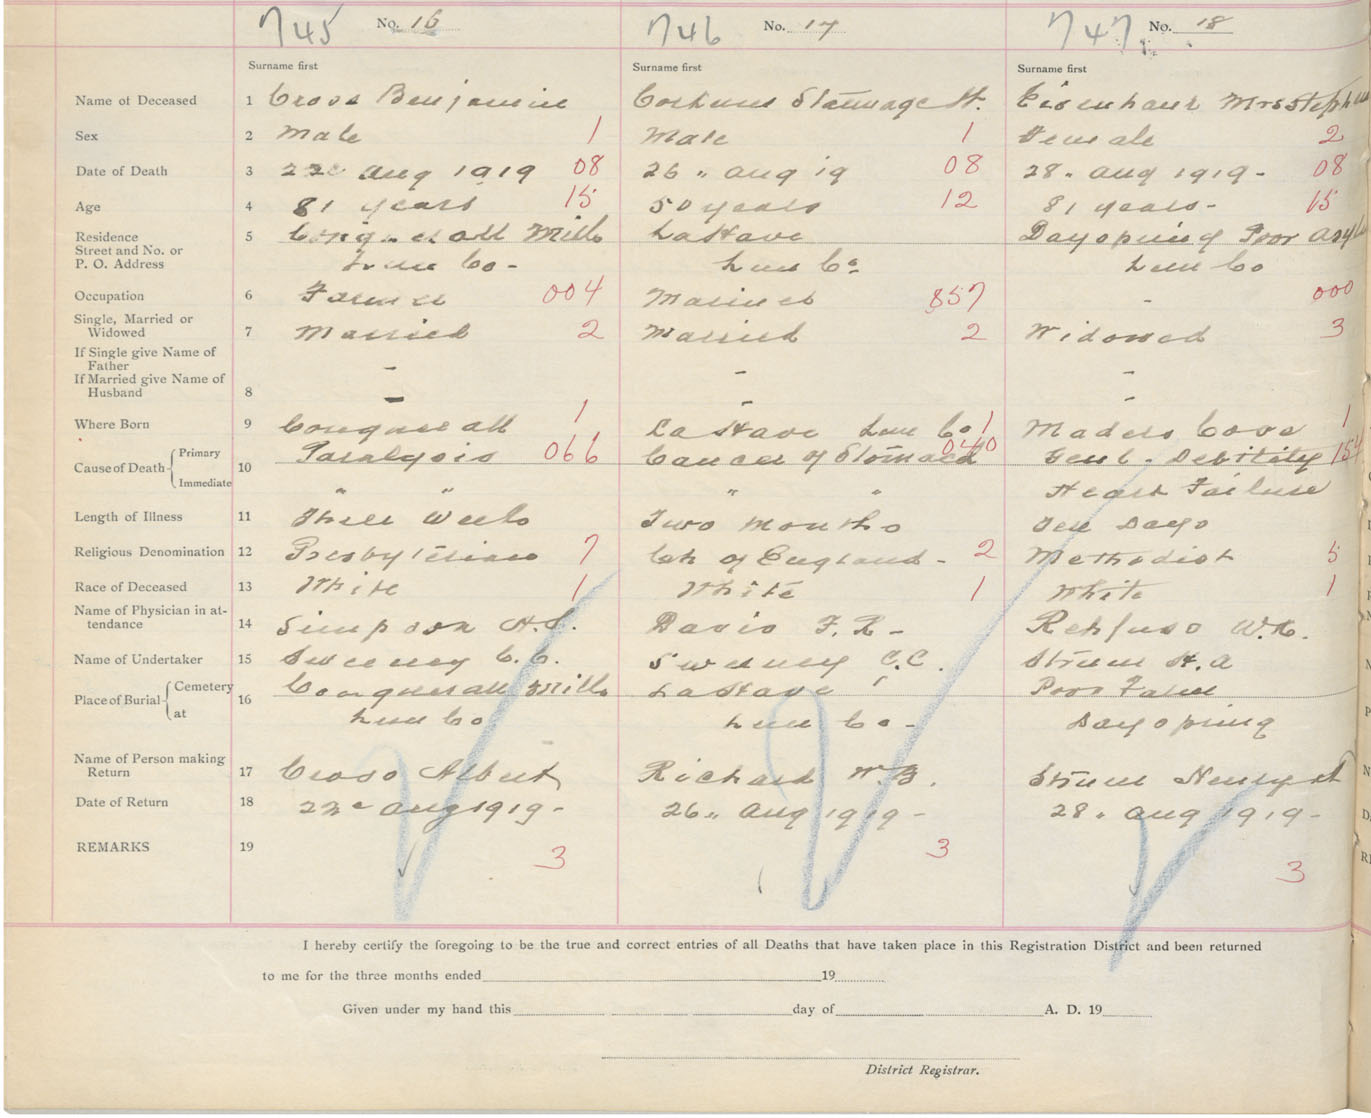 745 No. 16 746 No. 17 747 No. 18
Surname first Surname first Surname first
Name of Deceased 1 Cross Benjamin Corkum Stannage H. Eisenhaur Mrs Steph
Sex 2 Male 1 Male 1 Female 2
Date of Death 3 22d Aug 1919 08 26 " Aug 19 08 28 " Aug 1919 - 08
Age 4 81 years 15 50 years 12 81 years - 15
Residence 5 Conquerall Mills LaHave Dayspring Poor Asyl
Street and No. or
P. O. Address Lun Co - Lun Co Lun Co
Occupation 6 Farmer 004 Mariner 857 - 000
Single, Married or
Widowed 7 Married 2 Married 2 Widowed 3
If Single give Name of
Father - - -
If Married give Name of
Husband 8 - - -
Where Born 9 Conquerall 1 LaHave Lun Co 1 Maders Cove 1
Cause of Death Primary 10 Paralysis 066 Cancer of Stomach 040 Genl. Debility 154
Immediate " " " " Heart Failure
Length of Illness 11 Three Weeks Two Months Ten Days
Religious Denomination 12 Presbyterian 7 Ch of England - 2 Methodist 5
Race of Deceased 13 White 1 White 1 White 1
Name of Physician in at-
tendance 14 Simpson H.C. Davis F. R - Rehfuss W.N.
Name of Undertaker 15 Sweeney C.C. Sweeney C.C. Strum H. A
Place of Burial Cemetery 16 Conquerall Mills LaHave Poor Farm
at Lun Co Lun Co - Dayspring
Name of Person making
Return 17 Cross Albert Richard W.B. Strum Henry A
Date of Return 18 22d Aug 1919 - 26 " Aug 1919 - 28 " Aug 1919 -
REMARKS 19 3 3 3
I hereby certify the foregoing to be the true and correct entries of all Deaths that have taken place in this Registration District and been returned
to me for the three months ended 19
Given under my hand this day of A. D. 19
District Registrar.